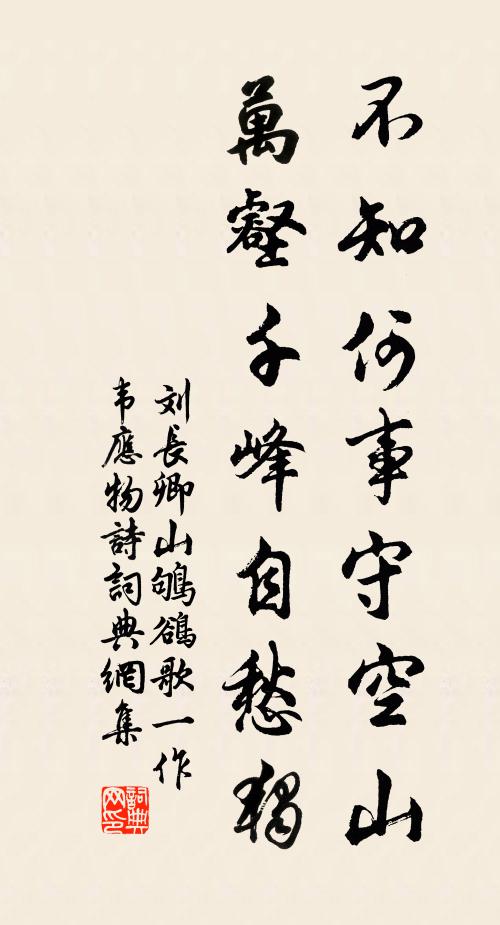 不知何事守空山
萬壑千峰自愁獨
刘長卿山鴝鵒歌一作
韦應物詩詞典網集
詞典网印